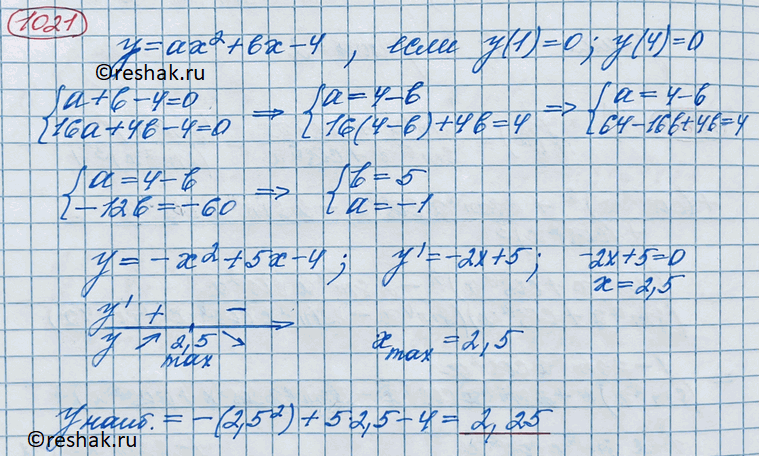 1021
y=ax²+bx-4, если y(1)=0; y(4)=0
©reshak.ru
{a+b-4=0 ⇒ {a=4-b ⇒ {a=4-b
{16a+4b-4=0 {16(4-b)+4b=4 {64-16b+4b=4
{a=4-b ⇒ {b=5
{-12b=-60 {a=-1
y=-x²+5x-4; y'=-2x+5; -2x+5=0
x=2,5
y' + -
y ↗ 2,5 ↘ x max = 2,5
max
y наиб. = -(2,5²)+5·2,5-4= 2,25
©reshak.ru